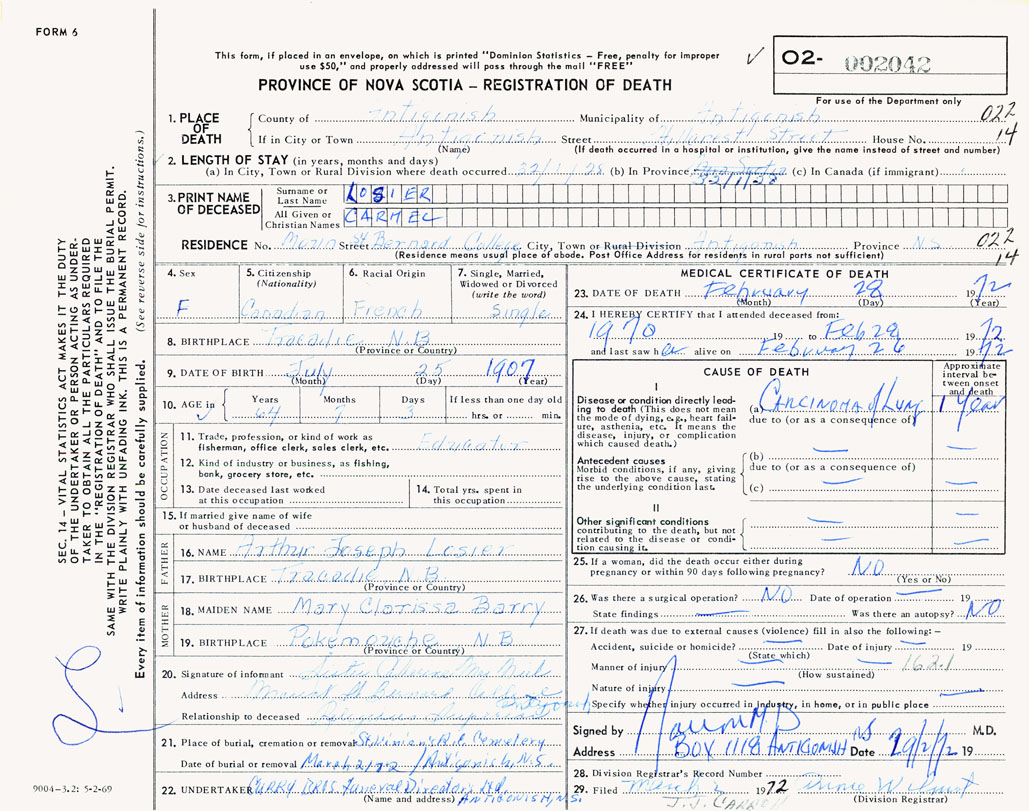 FORM 6
This form, if placed in an envelope, on which is printed "Dominion Statistics – Free, penalty for improper
use $50," and properly addressed will pass through the mail "FREE"
PROVINCE OF NOVA SCOTIA – REGISTRATION OF DEATH
O2- 002042
For use of the Department only
022
14
1. PLACE OF DEATH
County of Antigonish Municipality of Antigonish
If in City or Town Antigonish Street Hillcrest Street House No.
(Name) (If death occurred in a hospital or institution, give the name instead of street and number)
2. LENGTH OF STAY (in years, months and days)
(a) In City, Town or Rural Division where death occurred 32/1/28 (b) In Province Nova Scotia (c) In Canada (if immigrant)
32/1/28
3. PRINT NAME OF DECEASED
Surname or Last Name LOSIER
All Given or Christian Names CARMEL
RESIDENCE No. Street St Bernard College City, Town or Rural Division Antigonish Province N.S. 022
(Residence means usual place of abode. Post Office Address for residents in rural parts not sufficient) 14
4. Sex
F
5. Citizenship
(Nationality)
Canadian
6. Racial Origin
French
7. Single, Married,
Widowed or Divorced
(write the word)
Single
8. BIRTHPLACE Tracadie N B
(Province or Country)
9. DATE OF BIRTH July 25 1907
(Month) (Day) (Year)
10. AGE in Years Months Days If less than one day old
64 7 3 hrs. or min.
OCCUPATION
11. Trade, profession, or kind of work as
fisherman, office clerk, sales clerk, etc. Educator
12. Kind of industry or business, as fishing,
bank, grocery store, etc.
13. Date deceased last worked
at this occupation
14. Total yrs. spent in
this occupation
15. If married give name of wife
or husband of deceased
FATHER
16. NAME Arthur Joseph Losier
17. BIRTHPLACE Tracadie N B
(Province or Country)
MOTHER
18. MAIDEN NAME Mary Clarissa Barry
19. BIRTHPLACE Pokemouche N B
(Province or Country)
20. Signature of informant Sister
Address Mount St Bernard College
Antigonish
Relationship to deceased Religious Superior
21. Place of burial, cremation or removal St. Ninian's R.C. Cemetery
Date of burial or removal March 2/72 / Antigonish, N.S.
22. UNDERTAKER CURRY BROS. Funeral Directors Ltd.
(Name and address) ANTIGONISH, N.S.
MEDICAL CERTIFICATE OF DEATH
23. DATE OF DEATH February 28 1972
(Month) (Day) (Year)
24. I HEREBY CERTIFY that I attended deceased from:
1970 19 to Feb 28 1972
and last saw her alive on February 26 1972
CAUSE OF DEATH
Approximate
interval be-
tween onset
and death
I
Disease or condition directly lead-
ing to death (This does not mean
the mode of dying, e.g., heart fail-
ure, asthenia, etc. It means the
disease, injury, or complication
which caused death.)
(a) Carcinoma of Lung 1 Year
due to (or as a consequence of)
Antecedent causes
Morbid conditions, if any, giving
rise to the above cause, stating
the underlying condition last.
(b)
due to (or as a consequence of)
(c)
II
Other significant conditions
contributing to the death, but not
related to the disease or condi-
tion causing it.
25. If a woman, did the death occur either during
pregnancy or within 90 days following pregnancy? NO
(Yes or No)
26. Was there a surgical operation? NO Date of operation 19
State findings Was there an autopsy? NO
27. If death was due to external causes (violence) fill in also the following:–
Accident, suicide or homicide? Date of injury 19
(State which)
Manner of injury 162.1
(How sustained)
Nature of injury
Specify whether injury occurred in industry, in home, or in public place
Signed by MD M.D.
Address BOX 1118 ANTIGONISH NS Date 29/2/72 19
28. Division Registrar's Record Number
29. Filed March 2 1972
(Division Registrar)
SEC. 14 – VITAL STATISTICS ACT MAKES IT THE DUTY
OF THE UNDERTAKER OR PERSON ACTING AS UNDER-
TAKER TO OBTAIN ALL THE PARTICULARS REQUIRED
IN THE "REGISTRATION OF DEATH" AND TO FILE THE
SAME WITH THE DIVISION REGISTRAR WHO SHALL ISSUE THE BURIAL PERMIT.
WRITE PLAINLY WITH UNFADING INK. THIS IS A PERMANENT RECORD.
Every item of information should be carefully supplied. (See reverse side for instructions.)
9004-3.2: 5-2-69